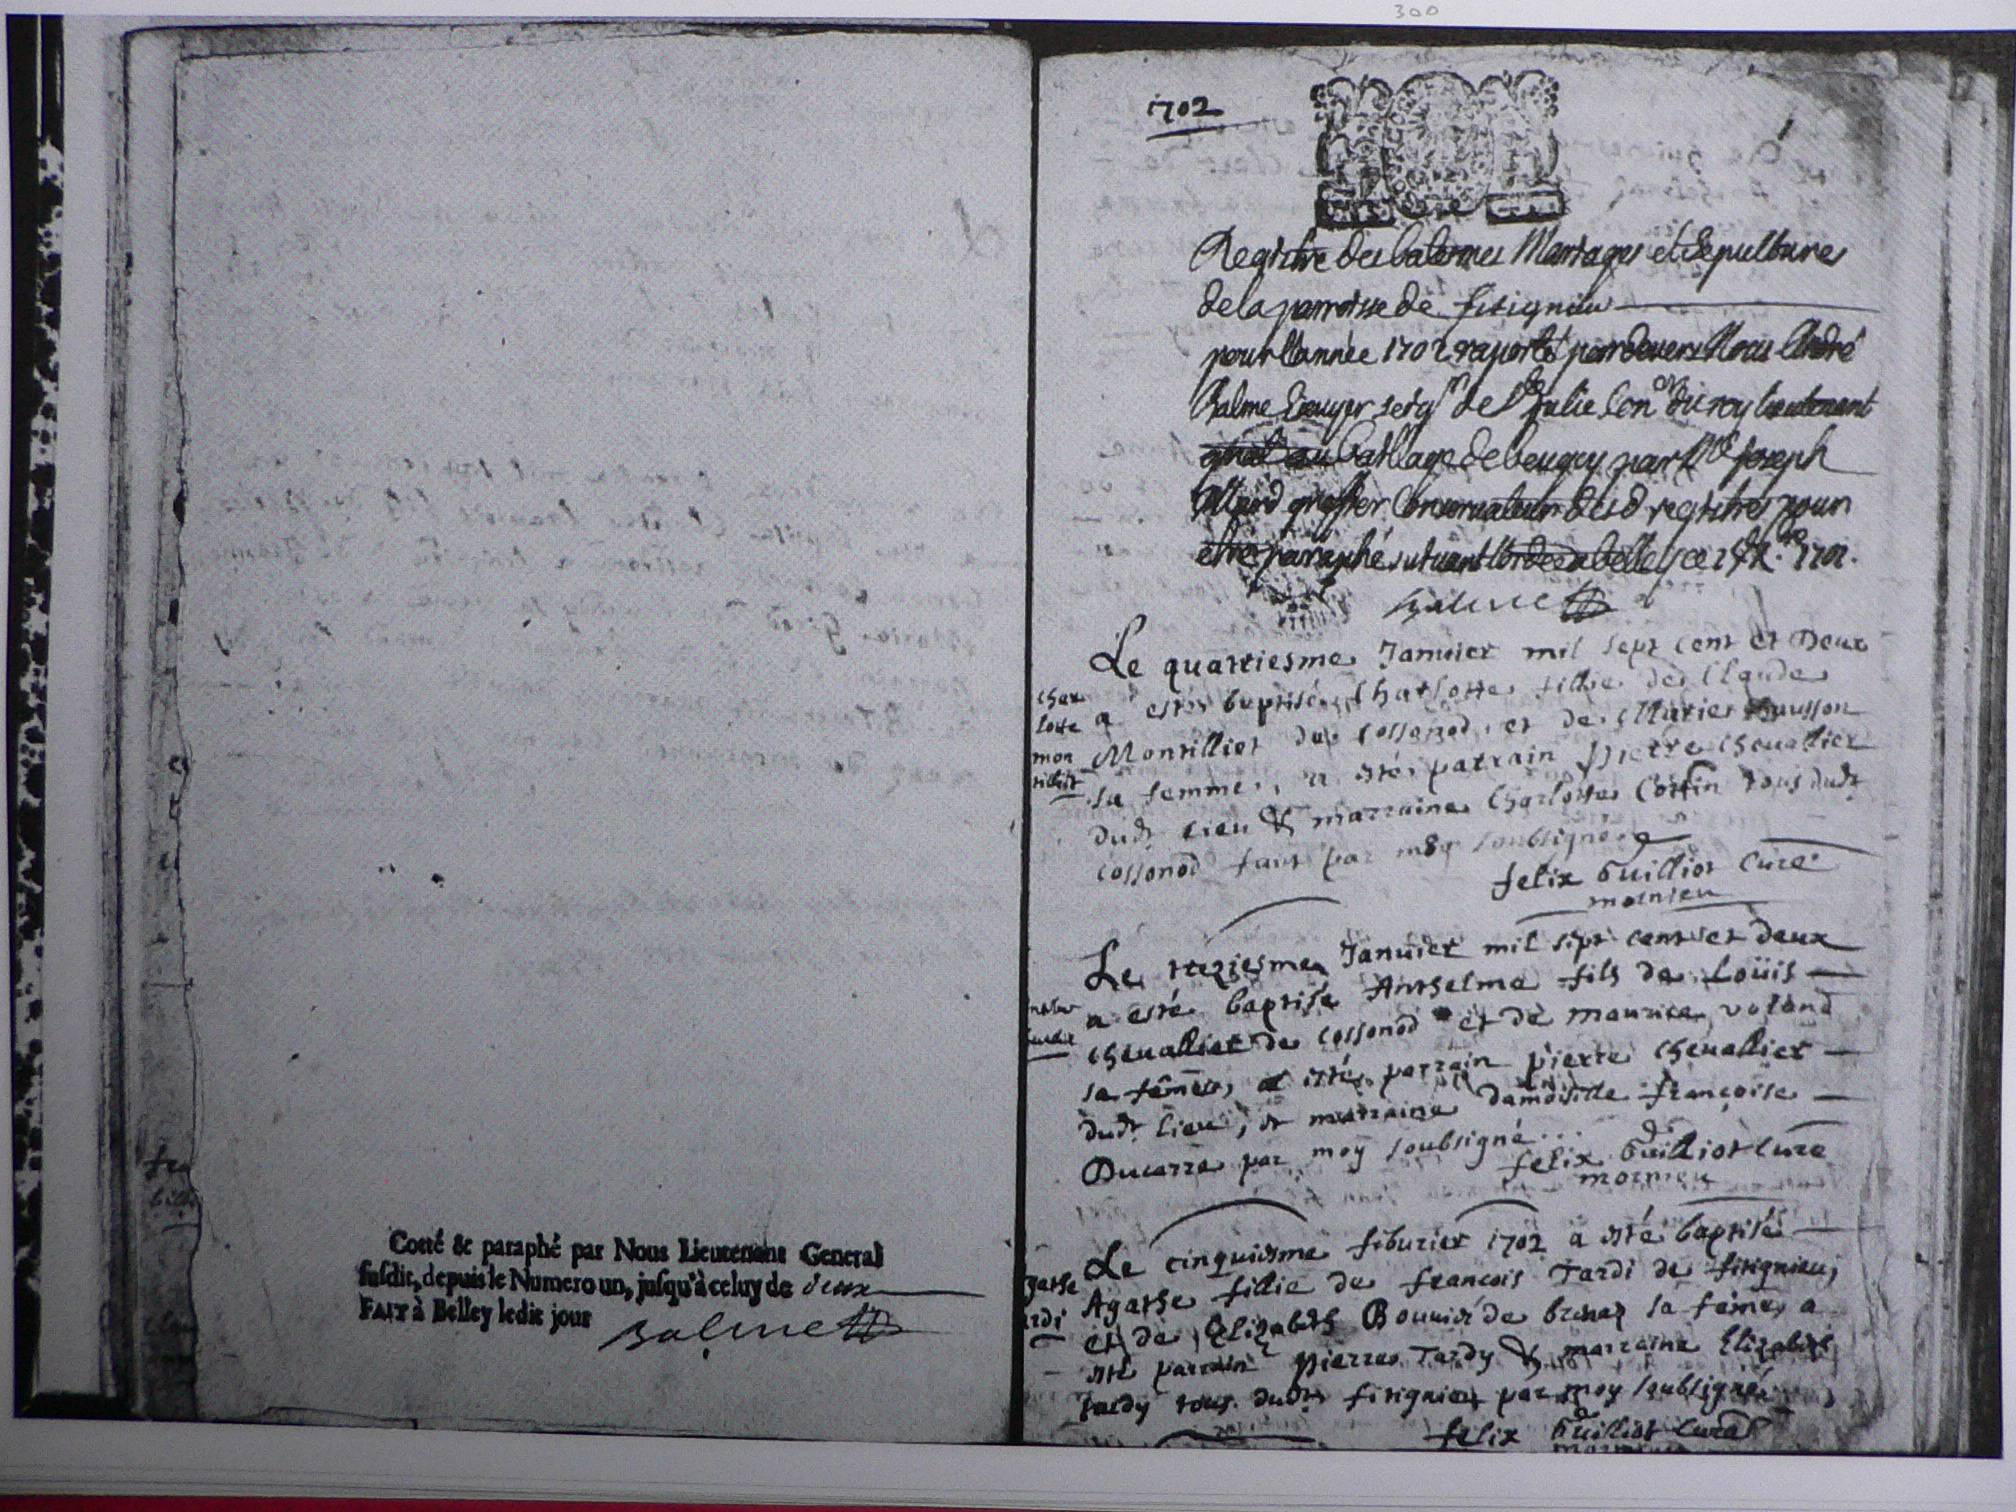 300
Cotté & paraphé par Nous Lieutenant General
susdit, depuis le Numero un, jusqu'à celuy de deux
FAIT à Belley ledit jour
Balme
1702
1
Registre des batesmes Mariages et Sepultures
de la parroisse de fitignieu
pour l'année 1702 raporté par devers Nous André
Balme Escuyer seigr de Ste Julie Conr du roy lieutenant
gnal au bailliage de beugey par Me Joseph
greffier Conservateur desd registres pour
estre paraphé suivant l'ord a belley ce 1702.
Balme
Le quatriesme Januier mil sept cent et Deux
a estés baptisée Charlotte fillie de Claude
Montilliet de cossonod, et de Marie husson
sa femme, a esté parrain pierre cheuallier
dudt lieu & marraine Charlotte Cottin tous dudt
cossonod faict par moy soubsigné
char
lotte
mon
tilliet
felix Guilliot Curé
mornieu
Le treziesme Januier mil sept cent et deux
a esté baptisé Anthelme fils de Loüis
cheuallier de cossonod et de maurice voland
sa féme, a esté parrain pierre cheuallier
dudt lieu, et marraine damoiselle françoise
Ducarre par moy soubsigné...
felix Guilliot Curé
mornieu
Le cinquiesme feburier 1702 a esté baptisée
Agathe fillie de francois Tardi de fitignieu,
et de Elizabeth Bouuier de brenaz sa féme, a
esté parrain pierre Tardy & marraine Elizabeth
Tardy tous dudt fitignieu par moy soubsigné
gathe
ardi
felix Guilliot Curé
mornieu